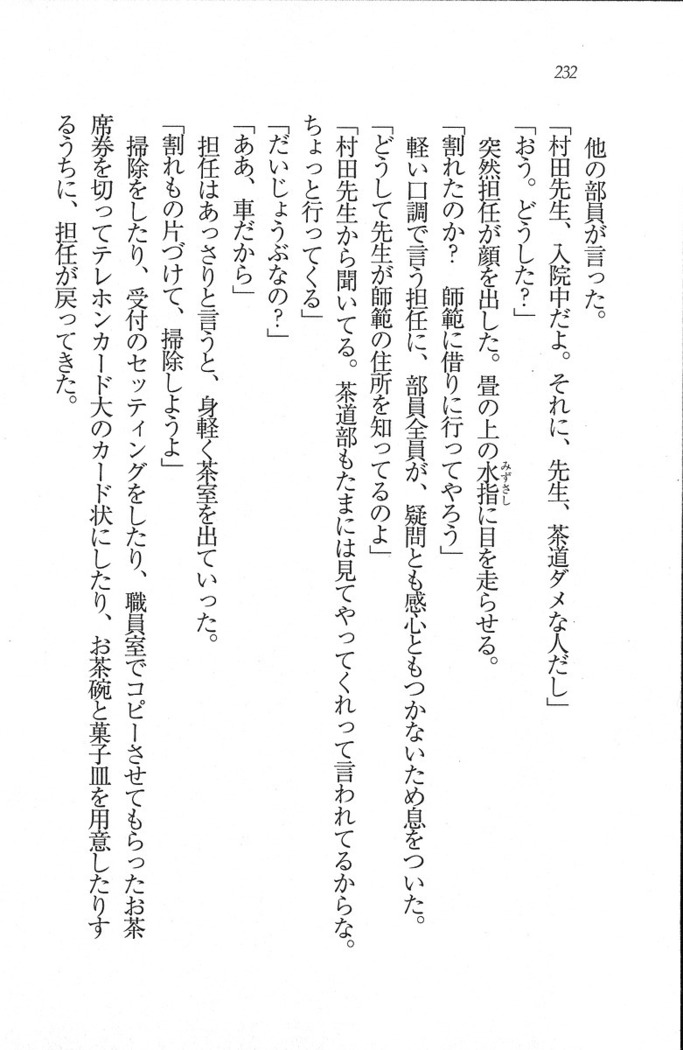 232
他の部員が言った。
「村田先生、入院中だよ。それに、先生、茶道ダメな人だし」
「おう。どうした?」
突然担任が顔を出した。畳の上の水指に目を走らせる。
みずさし
「割れたのか? 師範に借りに行ってやろう」
軽い口調で言う担任に、部員全員が、疑問とも感心ともつかないため息をついた。
「どうして先生が師範の住所を知ってるのよ」
「村田先生から聞いてる。茶道部もたまには見てやってくれって言われてるからな。
ちょっと行ってくる」
「だいじょうぶなの?」
「ああ、車だから」
担任はあっさりと言うと、身軽く茶室を出ていった。
「割れもの片づけて、掃除しようよ」
掃除をしたり、受付のセッティングをしたり、職員室でコピーさせてもらったお茶
席券を切ってテレホンカード大のカード状にしたり、お茶碗と菓子皿を用意したりす
るうちに、担任が戻ってきた。